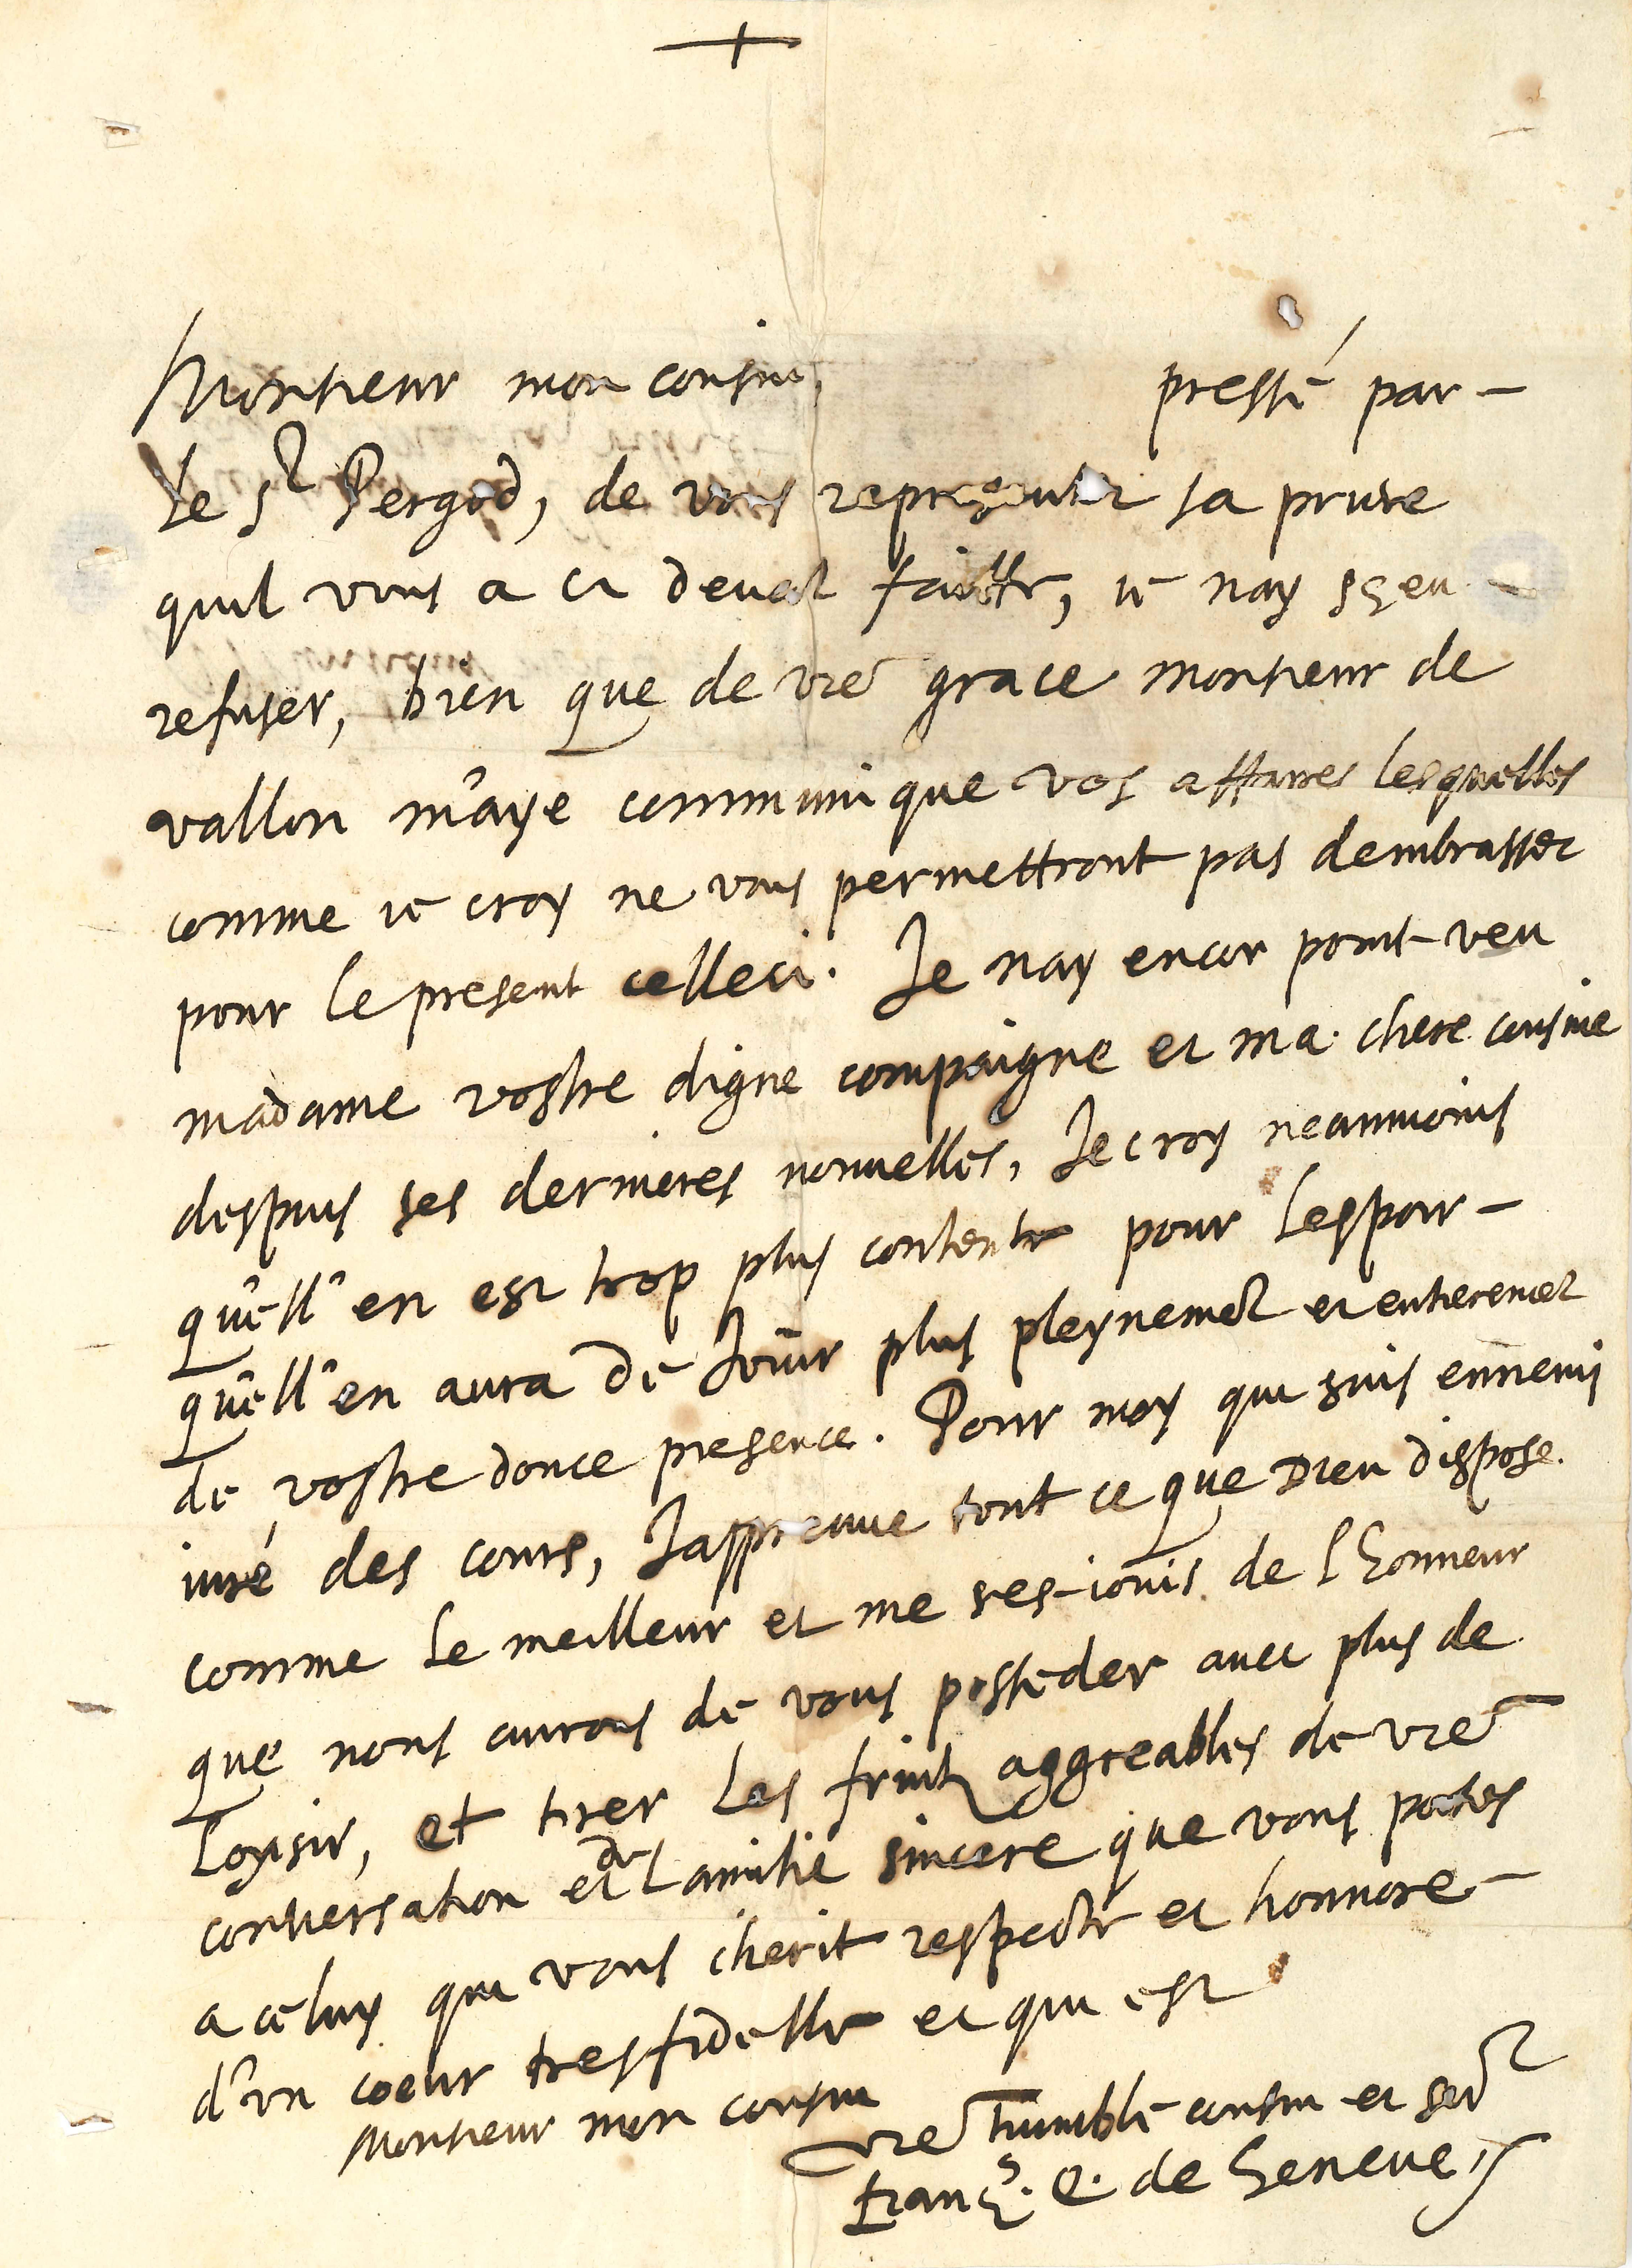 +
Monsieur mon cousin, pressé par
le Sr Pergod, de vous representer sa priere
quil vous a ci devat faitte, ie nay sçeu
refuser, bien que de vre grace monsieur de
vallon m'aye communique vos affaires lesquelles
comme ie croy ne vous permettront pas dembrasser
pour le present celleci. Je nay encor point veu
madame vostre digne compaigne et ma chere cousine
despuis ses dernieres nouvelles, Je croy neanmoins
qu'ell' en est trop plus contente pour lespoir
qu'ell' en aura de Jouir plus pleynemet et entieremet
de vostre douce presence. Pour moy qui suis ennemi
iuré des cours, Jappreuve tout ce que Dieu dispose
comme le meilleur et me res-iouis de lhonneur
que nous aurons de vous posseder avec plus de
loysir, et tirer les fruitz aggreables de vre
conversation et de lamitie sincere que vous portes
a celuy qui vous cherit respecte et honnore
d'un coeur tresfidelle et qui est
Monsieur mon cousin
vre humble cousin et ser
Franç.s e. de Geneve